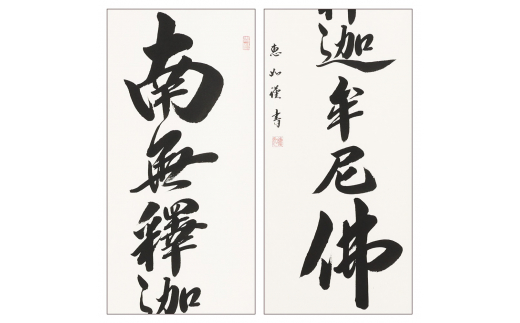 南無釋迦
釋迦牟尼佛
惠如謹書